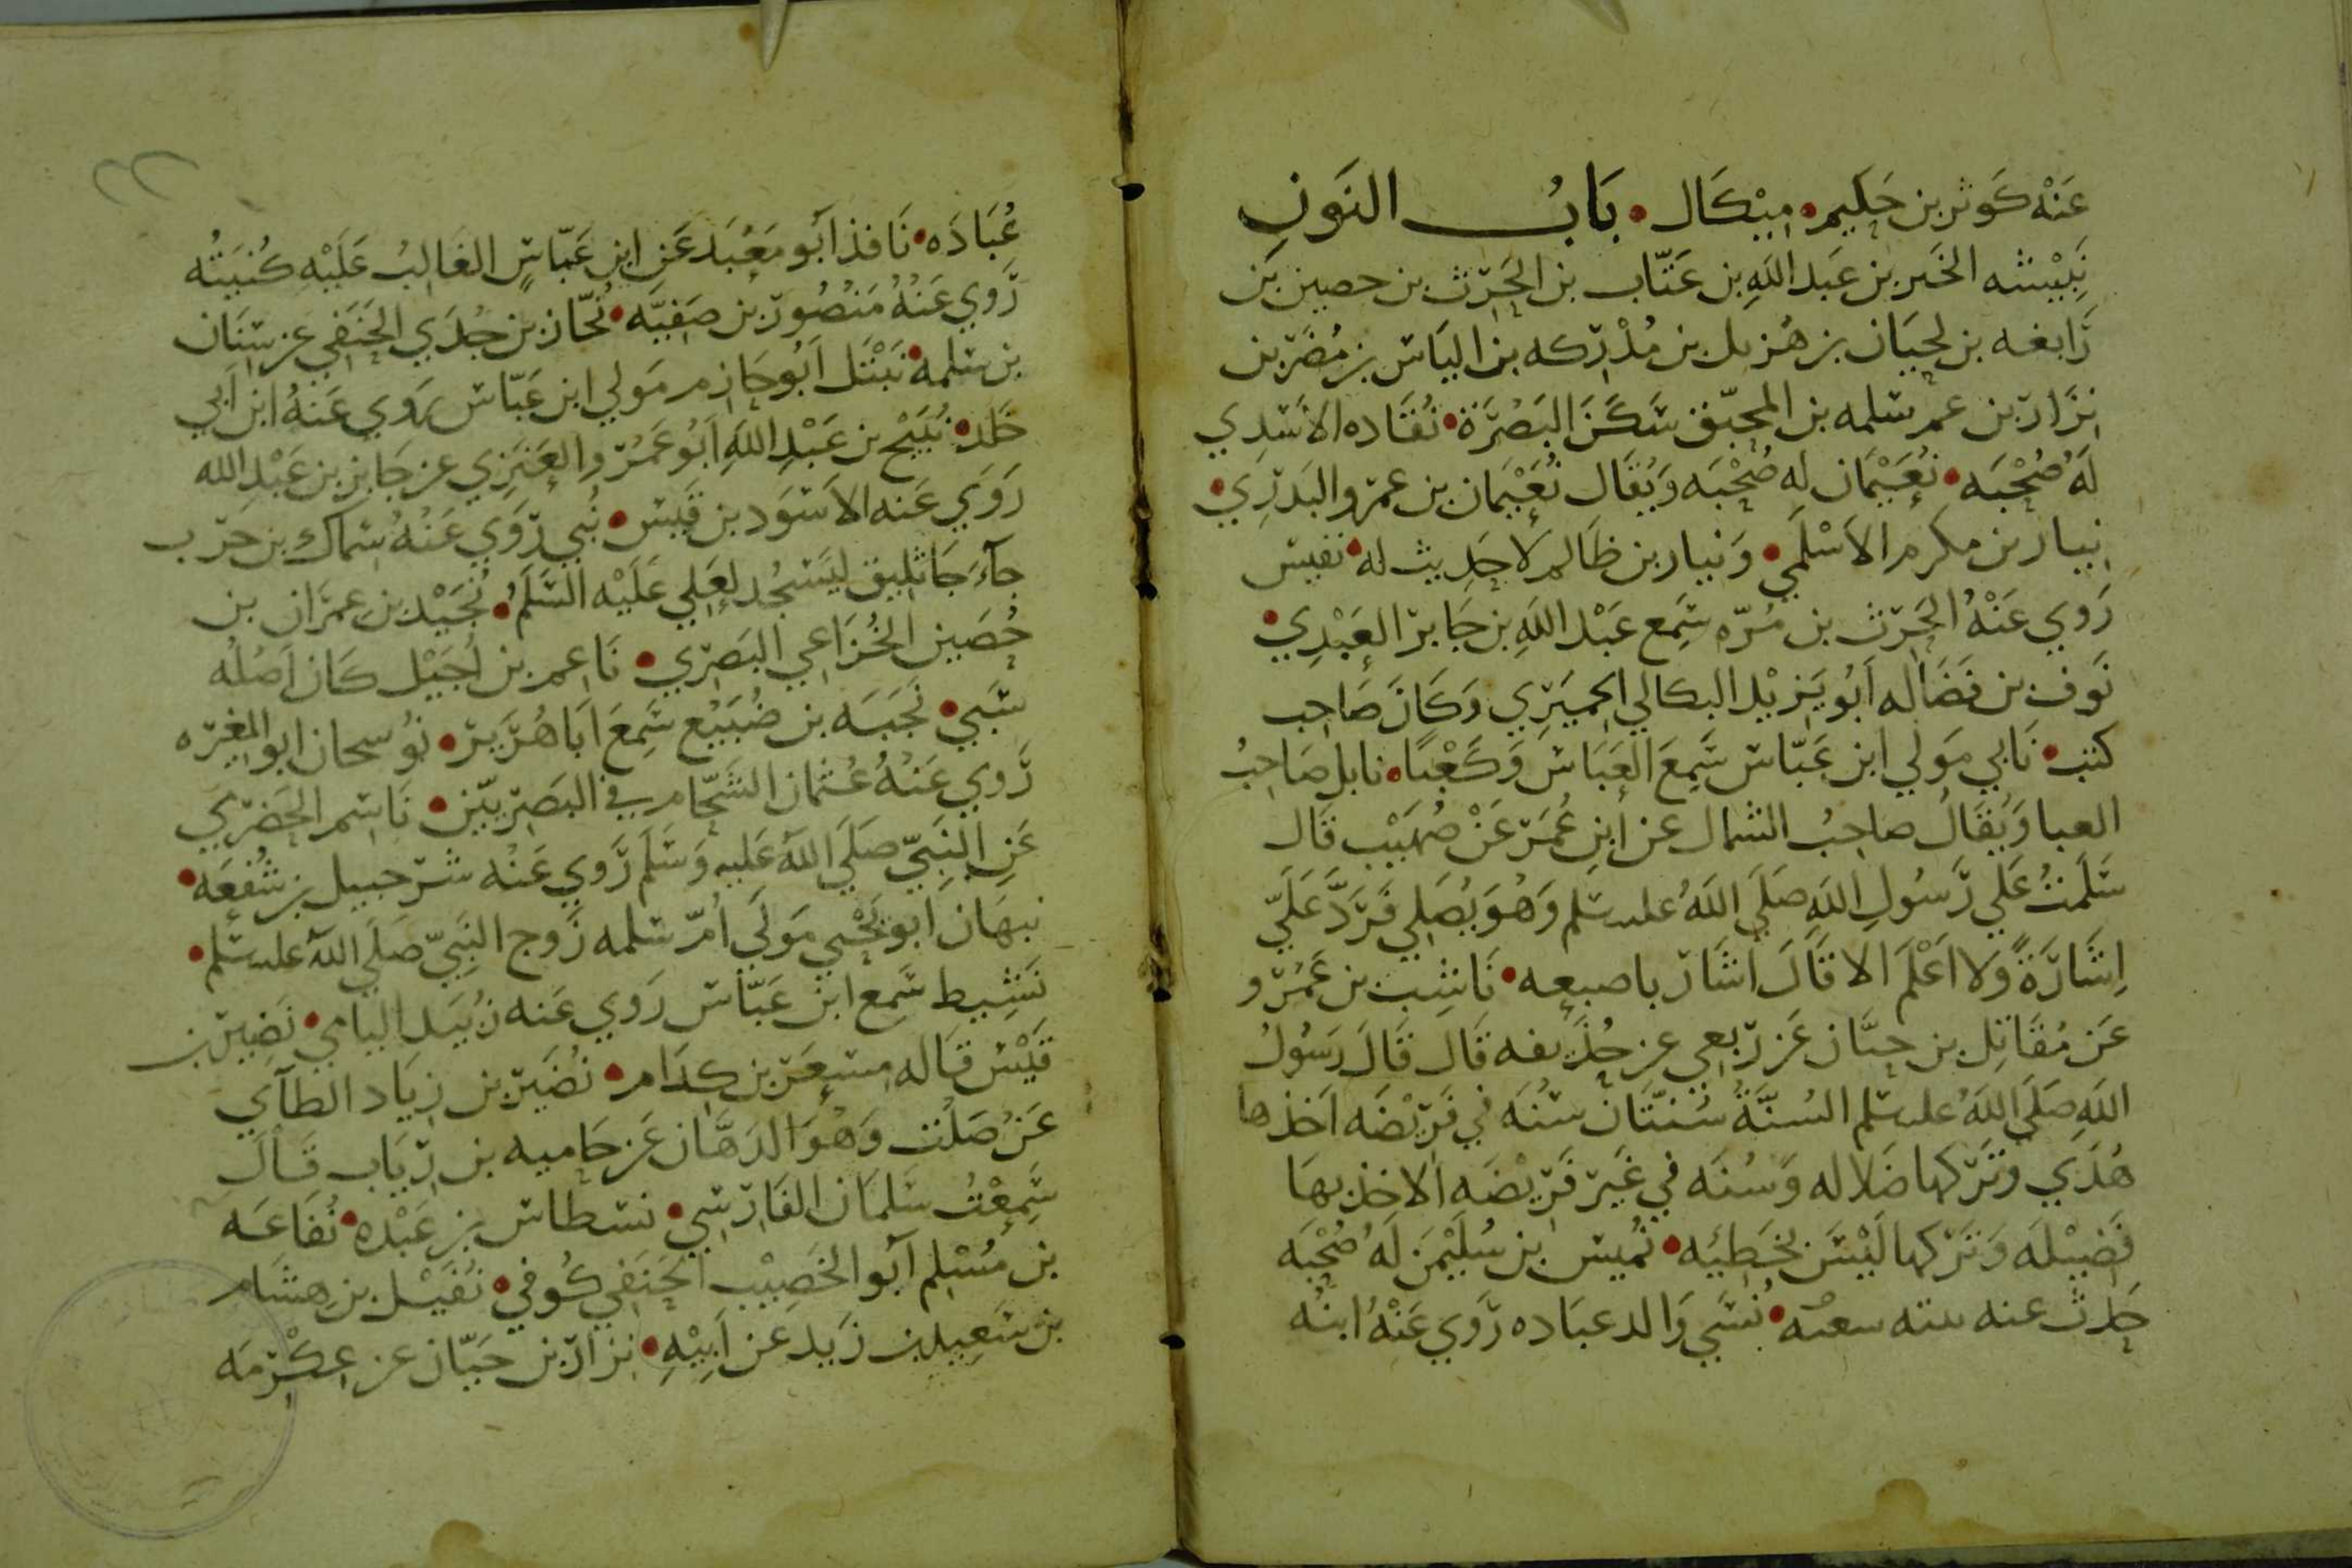 عَنْهُ كَوثر بن حَكِيم • مِيْكَال • بَابُ النَون
نُبَيْشه الخَير بن عَبد اللهِ بن عَتّاب بن الحَرث بن حصين بَن
رَابغه بن لِحيَان بن هُزيل بن مُدْرِكه بن اليَاس بن مُضَر بن
نزَار بن عم سلمه بن المحبّق سَكَنَ البَصْرَة • نُقَاده الاَسَدِي
لَهُ صُحْبَه • نُعَيْمَان له صُحْبَه وَيُقَال نُعَيْمَان بن عمرو البَدرِي •
نيار بن مكرم الاَسْلَمي • وَنيار بن ظَالم لاَ حَدِيث له • نفيس
رَوي عَنْهُ الحَرث بن مُرّه سَمِع عَبْد اللهِ بن جَابر العَبْدِي •
نَوف بن فَضَاله اَبُو يَزيْد البكالي الحِميَرِي وَكَانَ صَاحِب
كتب • نَابي مَولي ابن عَبّاس سَمِعَ العَبَاس وَكَعْبًا • نابل صَاحِبُ
العبا وَيُقَالُ صاحِبُ الشمال عن اُبنِ عُمَر عَنْ صُهَيْب قَال
سَلَمتُ عَلي رَسُولِ اللهِ صَلَي اللهُ علىه سلم وَهُوَ يُصَلي فَرَدَّ عَلَيّ
اِشَارَةً وَلا اَعْلَمَ الا قَالَ اشَار باصبعِه • نَاشِب بن عَمْرو
عَن مُقَاتِل بن حيَّان عَن ربعِي عن حُذَيفه قَال قَالَ رَسُولُ
اللهِ صَلَي اللهُ علىه سلم السُنَّةُ سُنتَّان سُنَه في فَرِيْضَه اَخذها
هُدَي وتَرَكها ضَلاله وَسُنَه في غَير فَرِيْضَه الاخذ بهَا
فَضِيْلَه وَتَركها لَيْسَ بخَطِيئه • نُميس بن سُلَيْمَن لَهُ صُحْبَه
حَدث عنه • نُسَي وَالد عبَاده رَوي عَنْهُ ابنُه
عُبَادَه • نَافذ اَبُو مَعْبَد عَنِ ابن عَبّاسٍ الغَالِبُ عَلَيْه كُنيَتُه
رَوي عَنْهُ مَنْصُور بن صَفيَّه • نُحّاز بن جُدَي الحَنَفِي عن سِنَان
بن سلمه • نَبْتَل اَبُو حَازم مَولي ابن عَبّاس رَوي عَنهُ ابن اَبي
خَلد • نُبَيْح بن عَبْدِ اللهِ اَبُو عَمْرو العَنَزِي عن جَابِر بن عَبْدِ الله
رَوَي عَنه الاَسْوَد بن قَيس • نُبي رَوَي عَنْهُ سِمَاك بن حرب
جَآءَ جَاثليق ليَسجُد لعَلِي عَلَيْه السَّلَمُ • نُجَيْد بن عمرَان بن
حُصَين الخُزَاعي البَصري • نَاعم بن اُجَيْل كَان اَصْلُه
سَبي • نَجَبَه بن ضُبَيْع سَمِعَ اَبَا هُرَيرَ • نُو سحان ابو المغِيره
رَوي عَنْهُ عُثمَان الشَحّام في البَصِريّين • نَاسِم الحَضرِي
عَن النَبِيّ صَلَي اللهُ عَليه وَسَلَم رَوي عَنْه شرحبيل بن شُفعَه •
نبهَان اَبُو يَحْيي مَولَي اُمّ سلمه زَوج النَبِيّ صَلَي اللهُ علىه سلم •
نَشِيط سَمع ابن عَبّاس رَوي عَنه زُبَيد اليامي • نَضِير بن
قَيْس قَاله مِسعَر بن كِدَام • نُضَير بن زِيَاد الطآي
عَنْ صَلْت وَهُوَ الدَهَّان عَن حَاميه بن رِيَاب قَالَ
سَمِعْتُ سَلمَان الفَارسِي • نسطاس بن عَبْده • نُفَاعَه
بن مُسْلم اَبُو الخَصِيْب الحَنَفي كُوفي • نُفَيْل بن هِشَام
بن سَعِيد بن زَيد عن اَبِيْهِ • نزار بن حَيّان عن عِكْرمَه